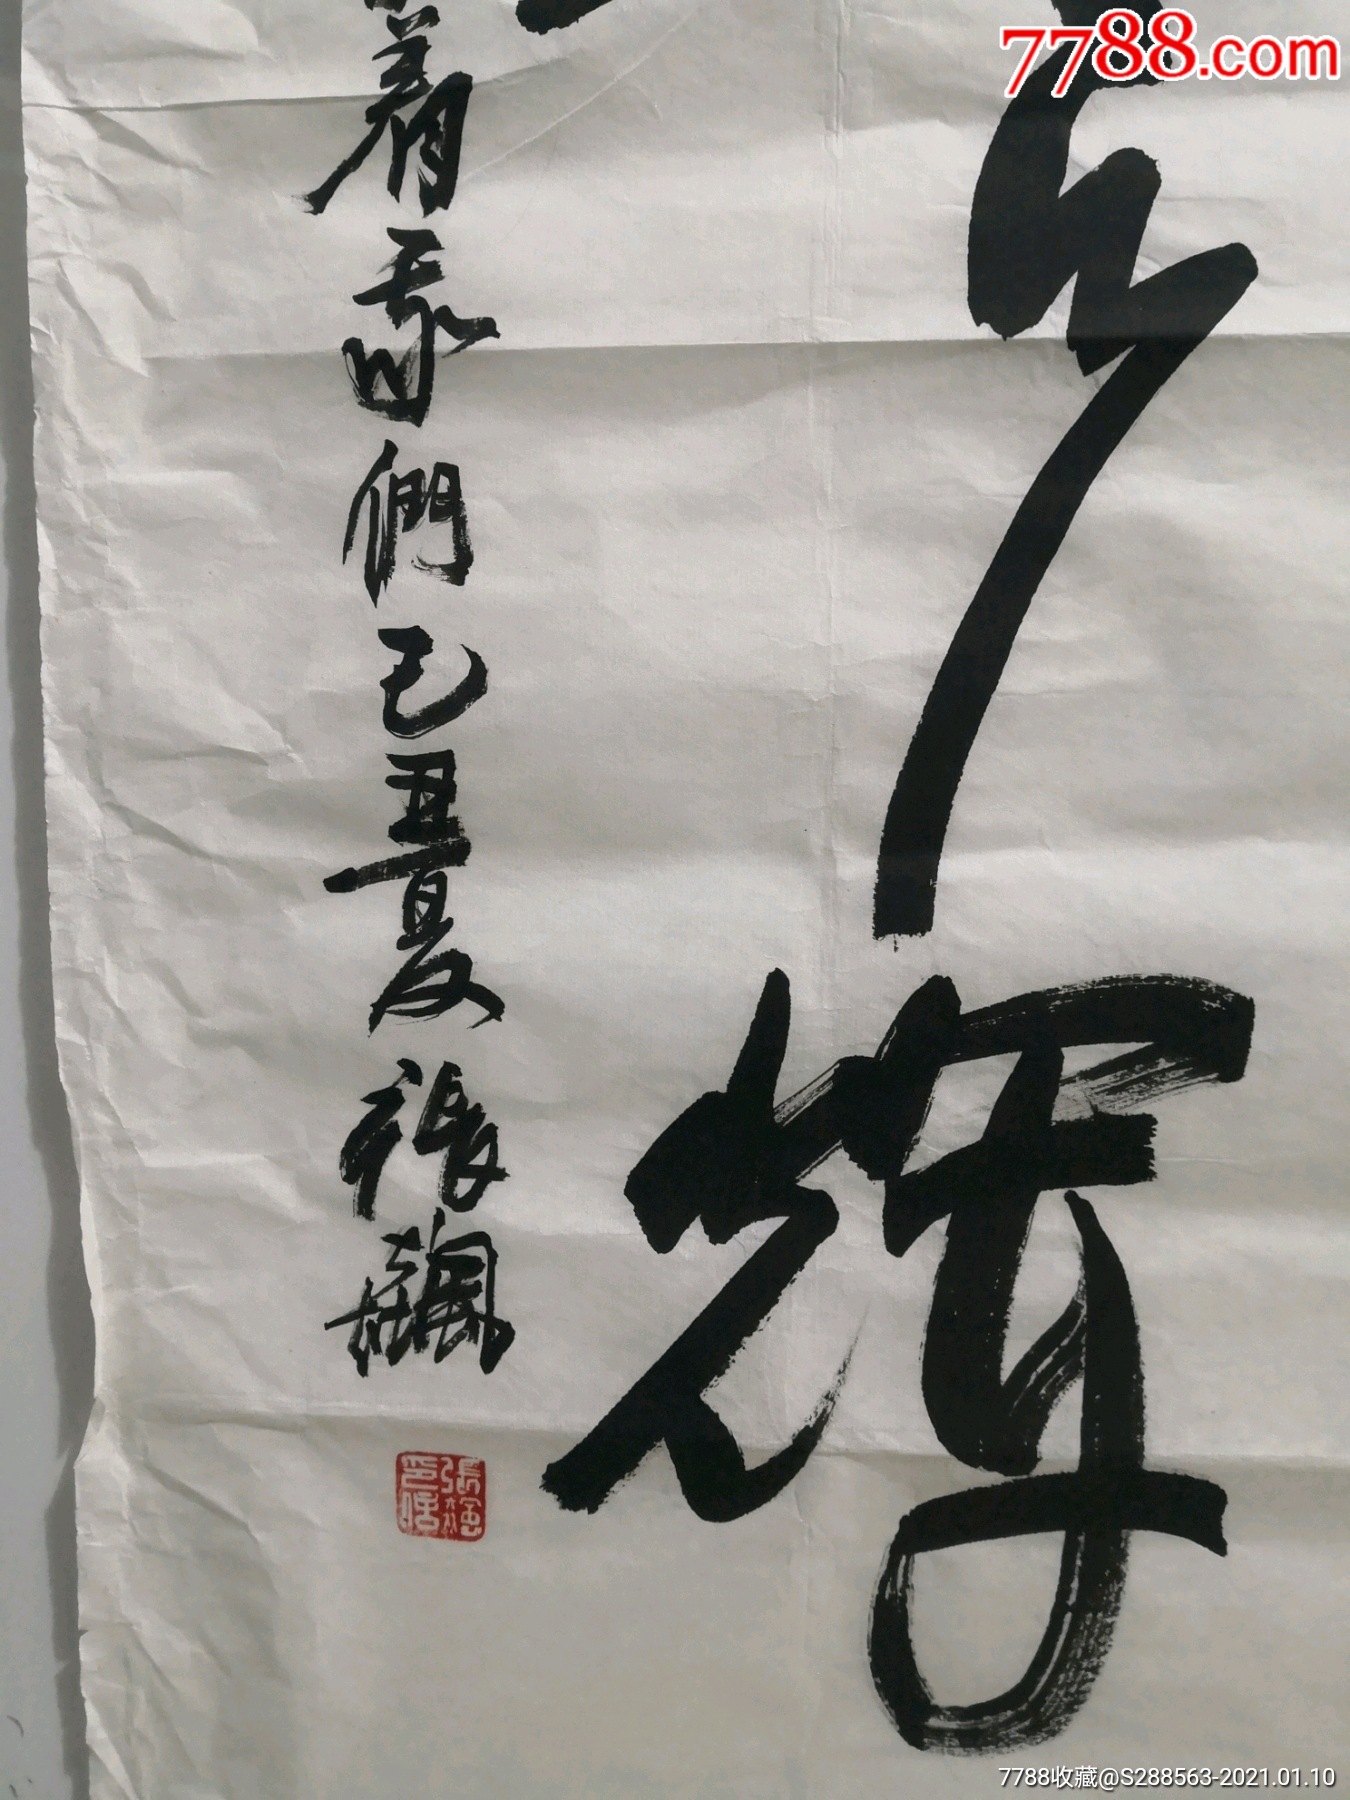 7788.com
輝
着我們己丑夏張飆
7788收藏@S288563-2021.01.10